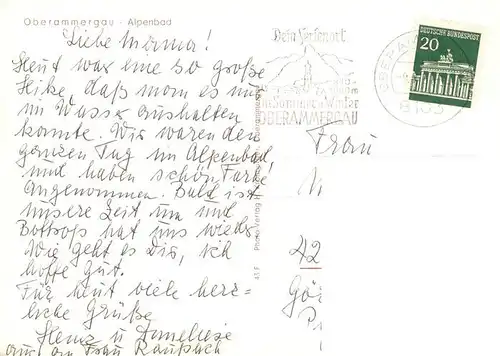 Oberammergau - Alpenbad
Liebe Mama!
Heut war eine so große
Hitze, daß man es nur
im Wasser aushalten
konnte. Wir waren den
ganzen Tag im Alpenbad,
und haben schön Farbe
angenommen. Bald ist
unsere Zeit um und
Bottrop hat uns wieder.
Wie geht es Dir, ich
hoffe gut.
Für heut viele herz=
liche Grüße
Heinz u Anneliese
auch an Frau
Dein Ferienort
im Sommer u Winter
OBERAMMERGAU
DEUTSCHE BUNDESPOST
20
8103
Photo-Verlag
45 F
Frau
42